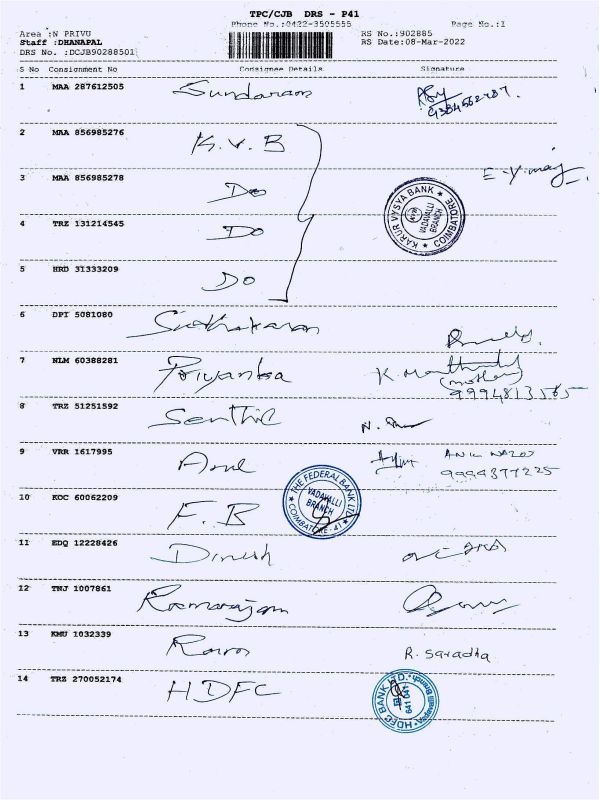 TPC/CJB DRS - P41
Phone No.:0422-3505555 Page No.:1
Area :N PRIVU RS No.:902885
Staff :DHANAPAL RS Date:08-Mar-2022
DRS No. :DCJB90288501
S No Consignment No Consignee Details Signature
1 MAA 287612505 Sundaram
2 MAA 856985276 K.V.B
3 MAA 856985278 Do
KARUR VYSYA BANK KVB VADAVALLI BRANCH COIMBATORE
4 TRZ 131214545 Do
5 HRD 31333209 Do
6 DPI 5081080
7 NLM 60388281 Priyanka K.
(mother)
9994813565
8 TRZ 51251592 Senthil N.
9 VRR 1617995 Arul
9994377225
10 KOC 60062209 F.B THE FEDERAL BANK LTD. VADAVALLI BRANCH COIMBATORE - 41
11 EDQ 12228426 Dinesh
12 TNJ 1007861
13 KMU 1032339 R. Saradha
14 TRZ 270052174 HDFC HDFC BANK LTD. 641 041 Vadavalli Branch